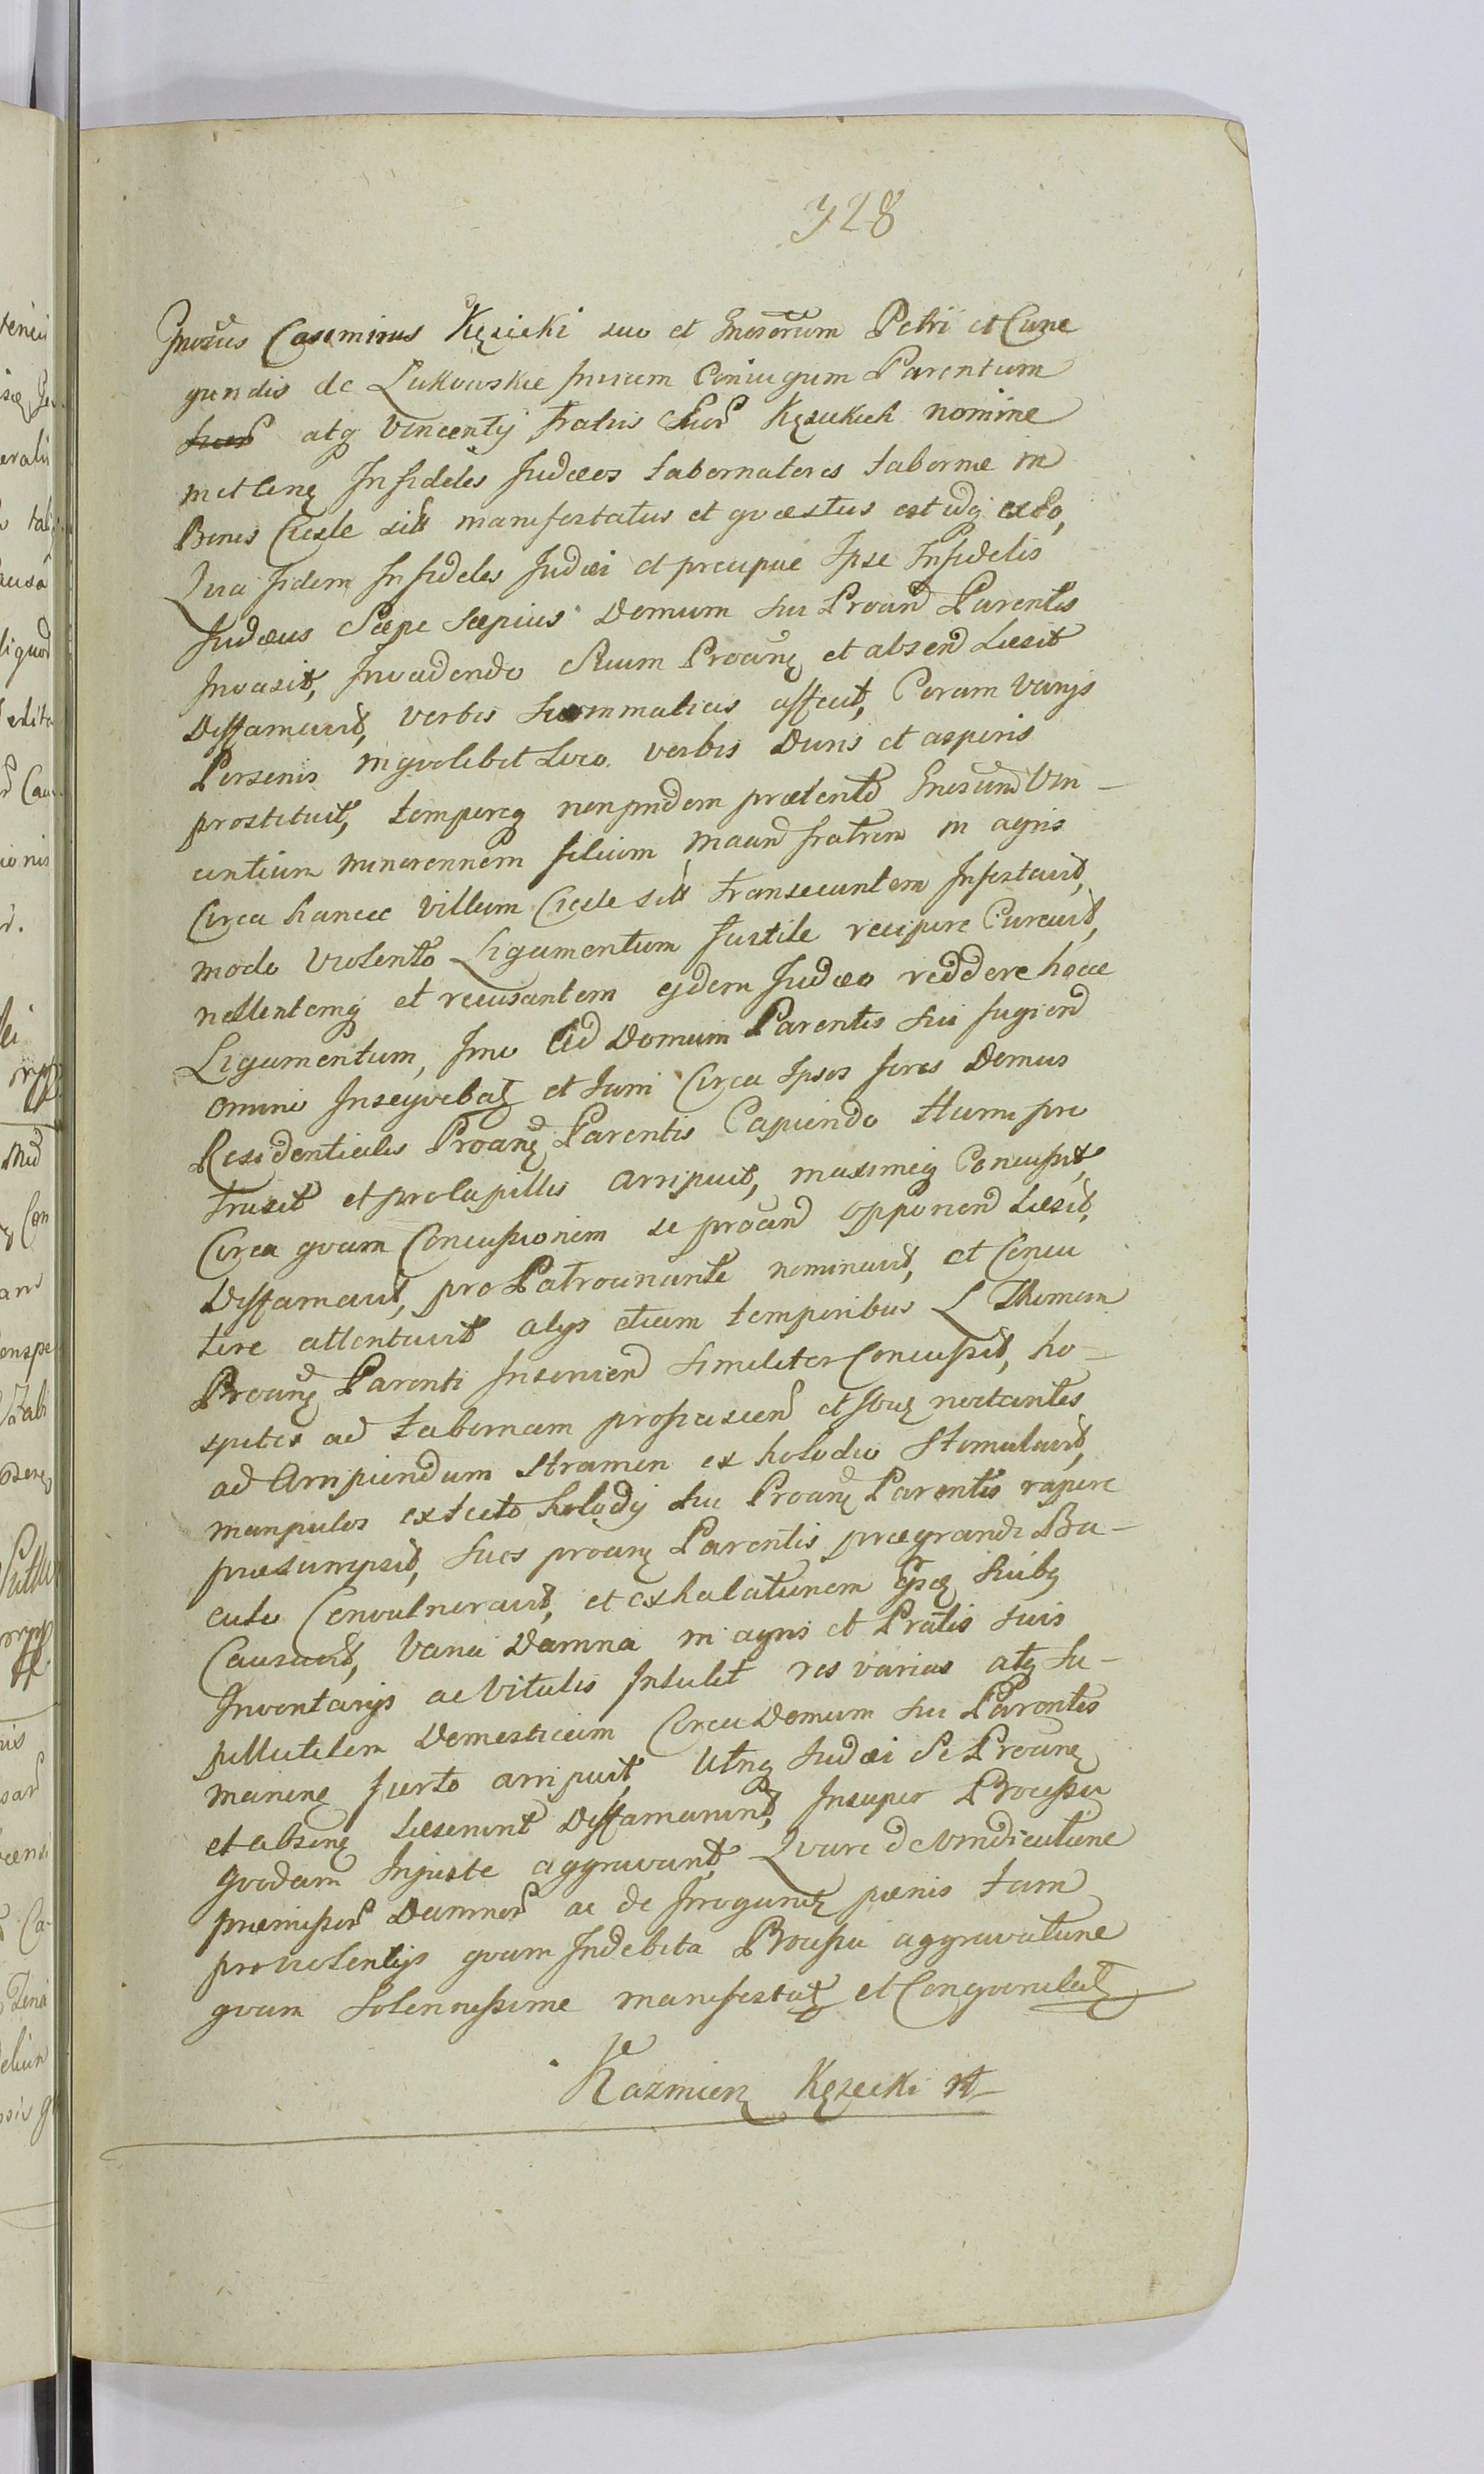 328
Gnosus Casimirus Kęsicki suo et Gnosorum Petri et Cune
gundis de Lukowskie Coniugum Parentum
suor atq Vincentij fratris suor Kęsickich nomine
Infideles Judæos tabernatores tabernæ in
Bonis Ciesle sitt manifestatus et qvæstus est idq ex Eo,
Qvia Iidem Infideles Judæi et precipue Ipse Infidelis
Judæus Sæpe Sæpius Domum sui Proand Parentis
Invasit, Invadendo Suum Proanq et absend Læsit
Diffamavit, verbis affecit, Coram Varijs
Personis inqvolibet Loco verbis Duris et asperis
prostituit, temporeq nonpridem prætento Gnosum Vin-
centium minorennem filium maand fratrem in agris
Circa hancce Villam Ciesle sitt transeuntem Infestavit,
modo Violento Ligamentum recipere Curavit,
nollentemq et recusantem ejdem Judæo reddere hocce
Ligamentum, Imo Ad Domum Parentis sui fugiend
omnino Inseqvebat et tum Circa Ipsas fores Domus
Residentialis Proanq Parentis Capiendo Humi pro
trusit et pro Capillis arripuit, maximeq Concussit,
Circa qvam Concussionem se proand opponend Læsit,
Diffamavit, pro Patrocinante nominavit, et Concu
tere attentavit alijs etiam temporibus L Thomam
Proanq Parenti Inserviend Similiter Concussit, ho-
spites ad tabernam proficiscend et Ibiq noctantes
ad Arripiendum Stramen ex holodio Stimulavit,
manipulos ex tecto holodij sui Proanq Parentis rapere
præsumpsit, Sues proanq Parentis prægrandi Ba-
culo Convulneravit, et exhalationem Suibq
Causavit, Varia Damna in agris et Pratis suis
Inventarijs ac Vitulis Intulit res varias atq Su-
pellectilem Domesticam Circa Domum sui Parentis
furto arripuit, Utriq Judæi Se Proanq
et absenq Læserunt Diffamarunt, Insuper Processu
qvodam Injuste aggravarunt, Qvare de Vindicatione
præmissor Damnor ac de Irrogandq pænis tam
pro violentijs qvam Indebita Processu aggravatione
qvam Solennissime manifestat et Conqverulat
Kazmierz Kęsicki mp